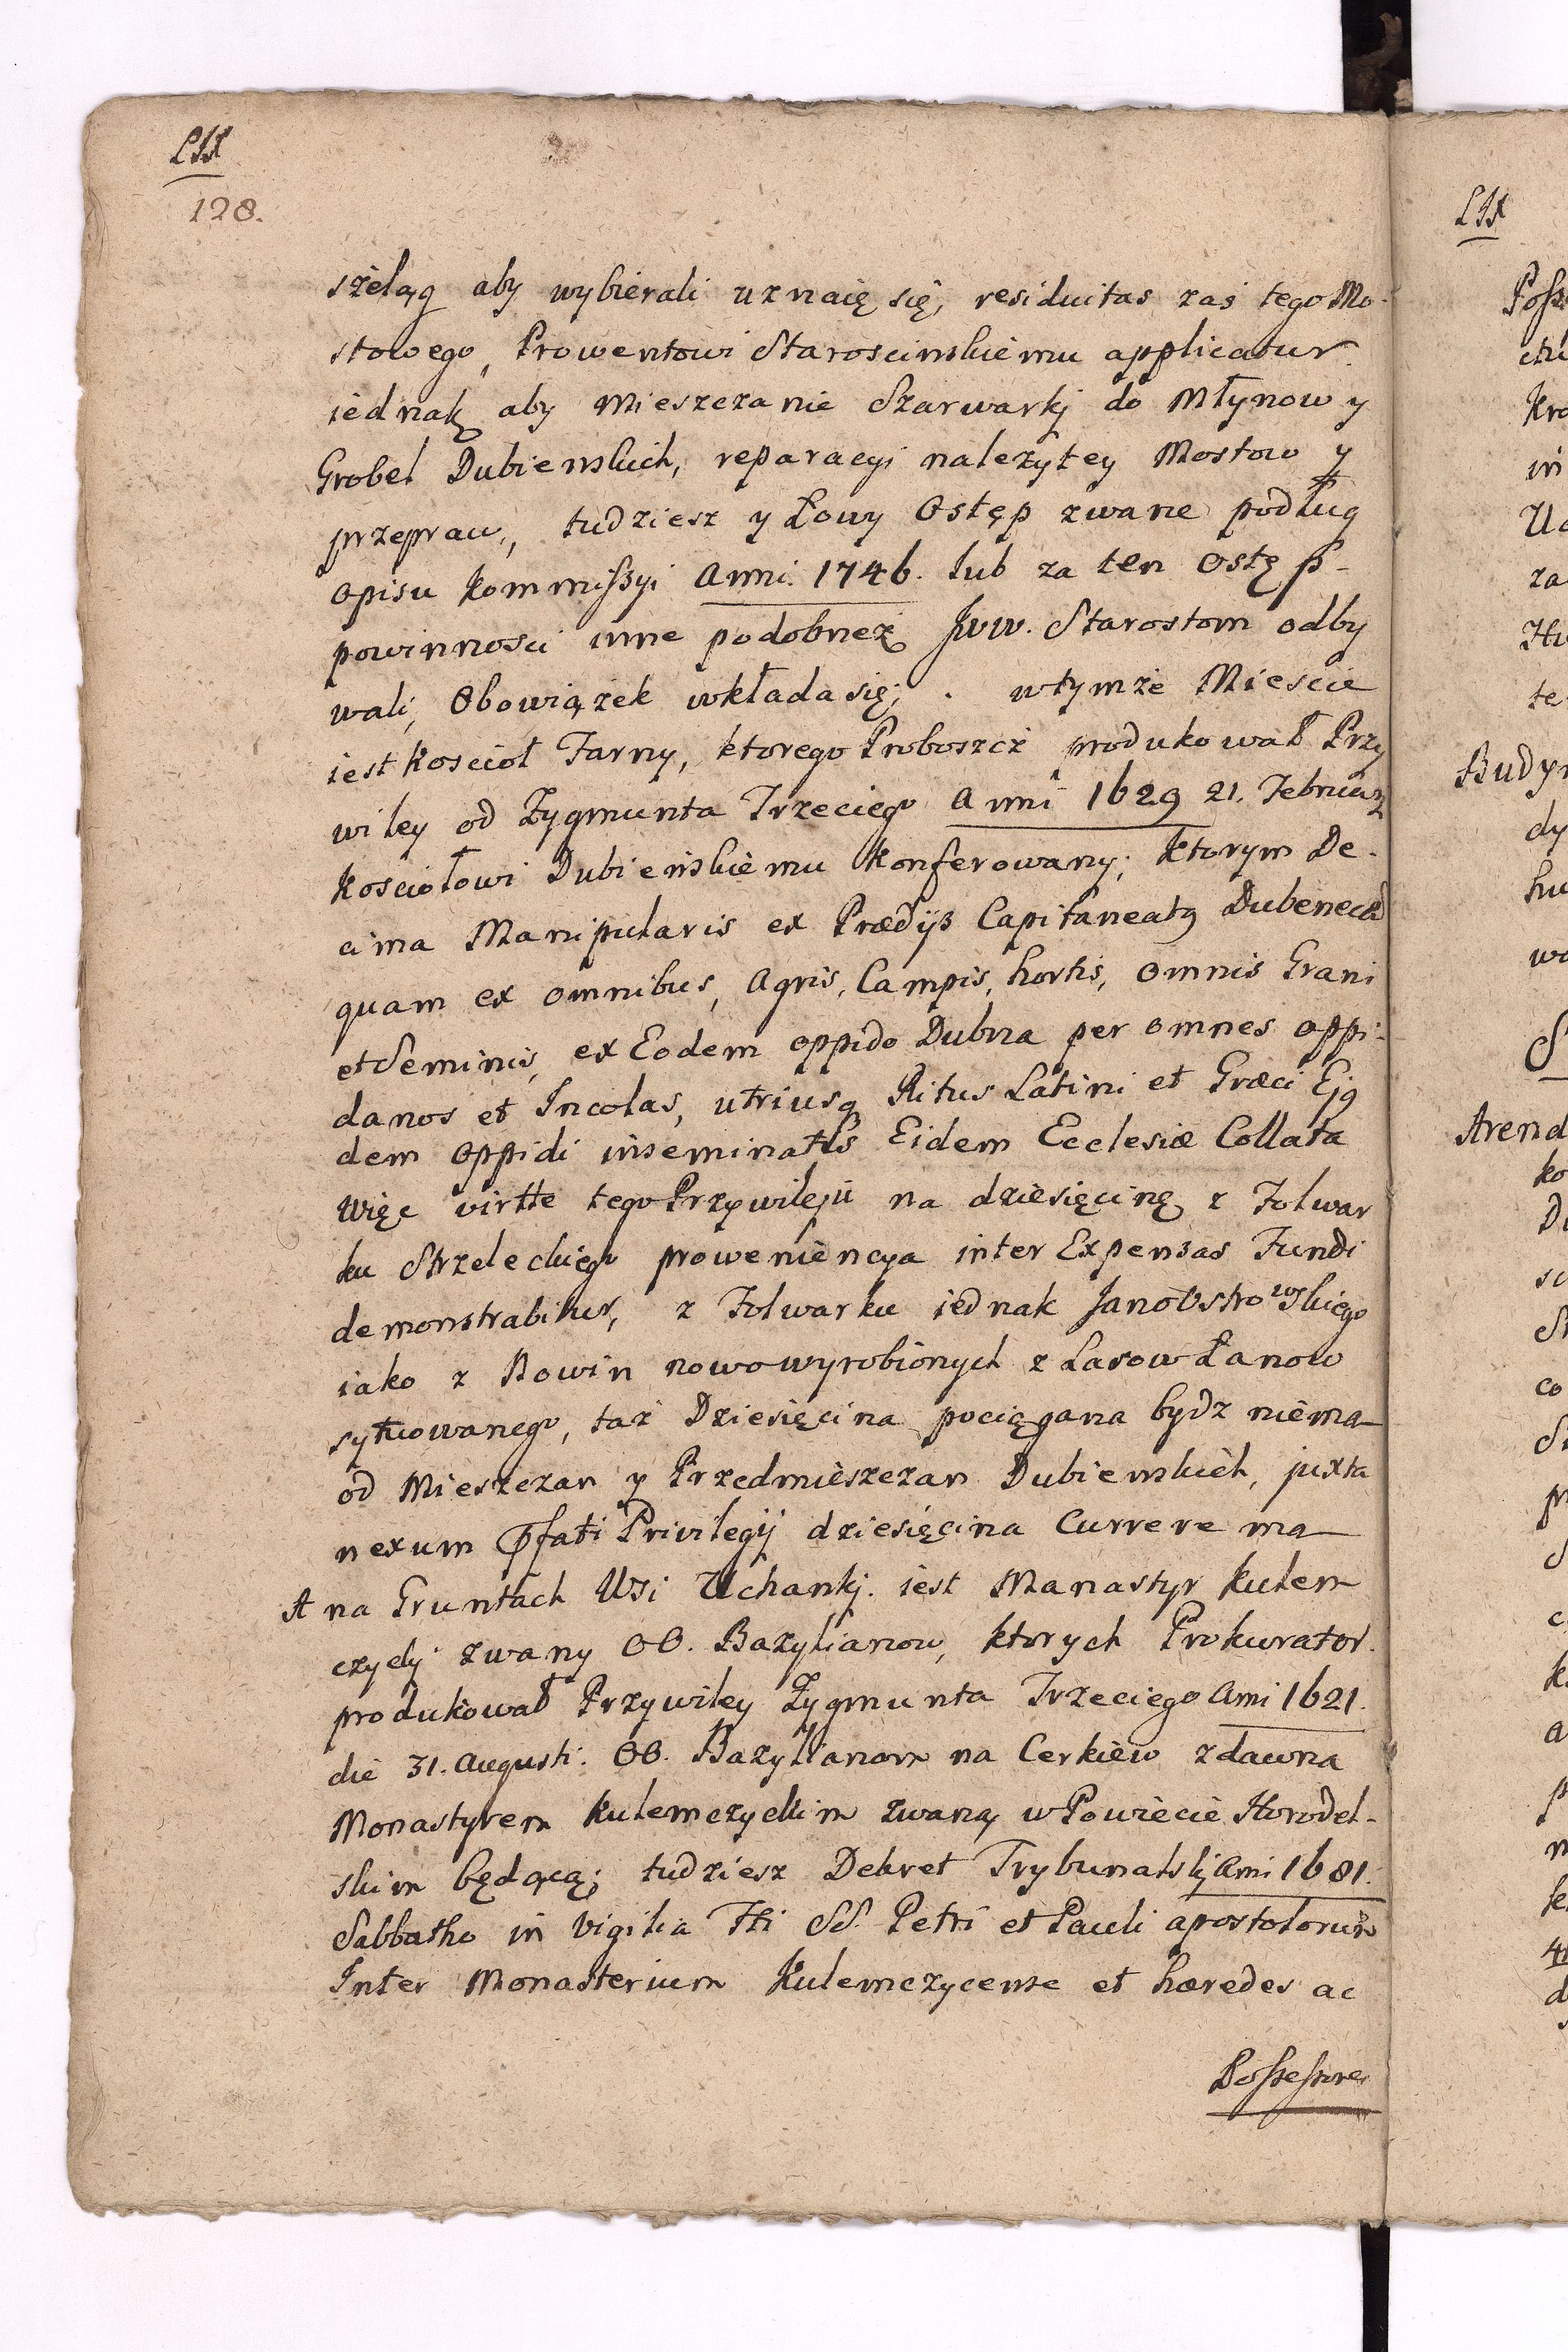 128.
szeląg aby wybierali uznaię się, residuitas zaś tego Mo-
stowego, Prowentowi Staroscinskiemu applicatur
iednak aby Mieszczanie Szarwarkj do Młynow y
Grobel Dubienskich, reparacyi należytey Mostow y
przepraw, tudziesz y Łowy Ostęp zwane podług
opisu Kommissyi Anni. 1746. lub za ten Ostęp-
powinnosci inne podobneż Jww. Starostom odby
wali, Obowiązek wkłada się; . wtymże Miescie
iest Koscioł Farny, ktorego Proboszcz produkował Przy
wiley od Zygmunta Trzeciego Anni 1629 21. Februarij
Kosciołowi Dubieńskiemu konferowany, ktorym De-
cima Manipularis ex Prædijs Capitaneatg
quam ex omnibus, Agris, Campis, hortis, omnis Grani
et Seminis, ex Eodem oppido Dubna per omnes oppi-
danos et Incolas, utriusq Ritus Latini et Græci Ejg
dem Oppidi inseminatis Eidem Ecclesiæ Collata
Więc virtte tego Przywileju na dziesięcinę z Folwar
ku Strzeleckiego proweniencya inter Expensas Fundi
demonstrabitur, z Folwarku iednak Janostrowskiego
iako z Nowin nowowyrobionych z Lasow Łanow
sytuowanego, taż Dziesięcina pociągana bydz niema
od Mieszczan y Przedmieszczan Dubienskich, juxta
nexum Pfati Privilegij dziesięcina Currere ma
A na Gruntach Wsi Uchankj. iest Manastyr kulem
czyckj zwany OO. Bazylianow, ktorych Prokurator.
produkował Przywiley Zygmunta Trzeciego Ami 1621.
die 31. Augusti. OO. Bazylianom na Cerkiew zdawna
Monastyrem kulemczyckim zwaną w Powiecie Horodel-
skim będącą; tudziesz Dekret Trybunalskj Ami 1681.
Sabbatho in Vigilia Fti SS. Petri et Pauli apostolorum
Inter Monasterium Kulemczycense et hæredes ac
Possessore
Budyn
Arend